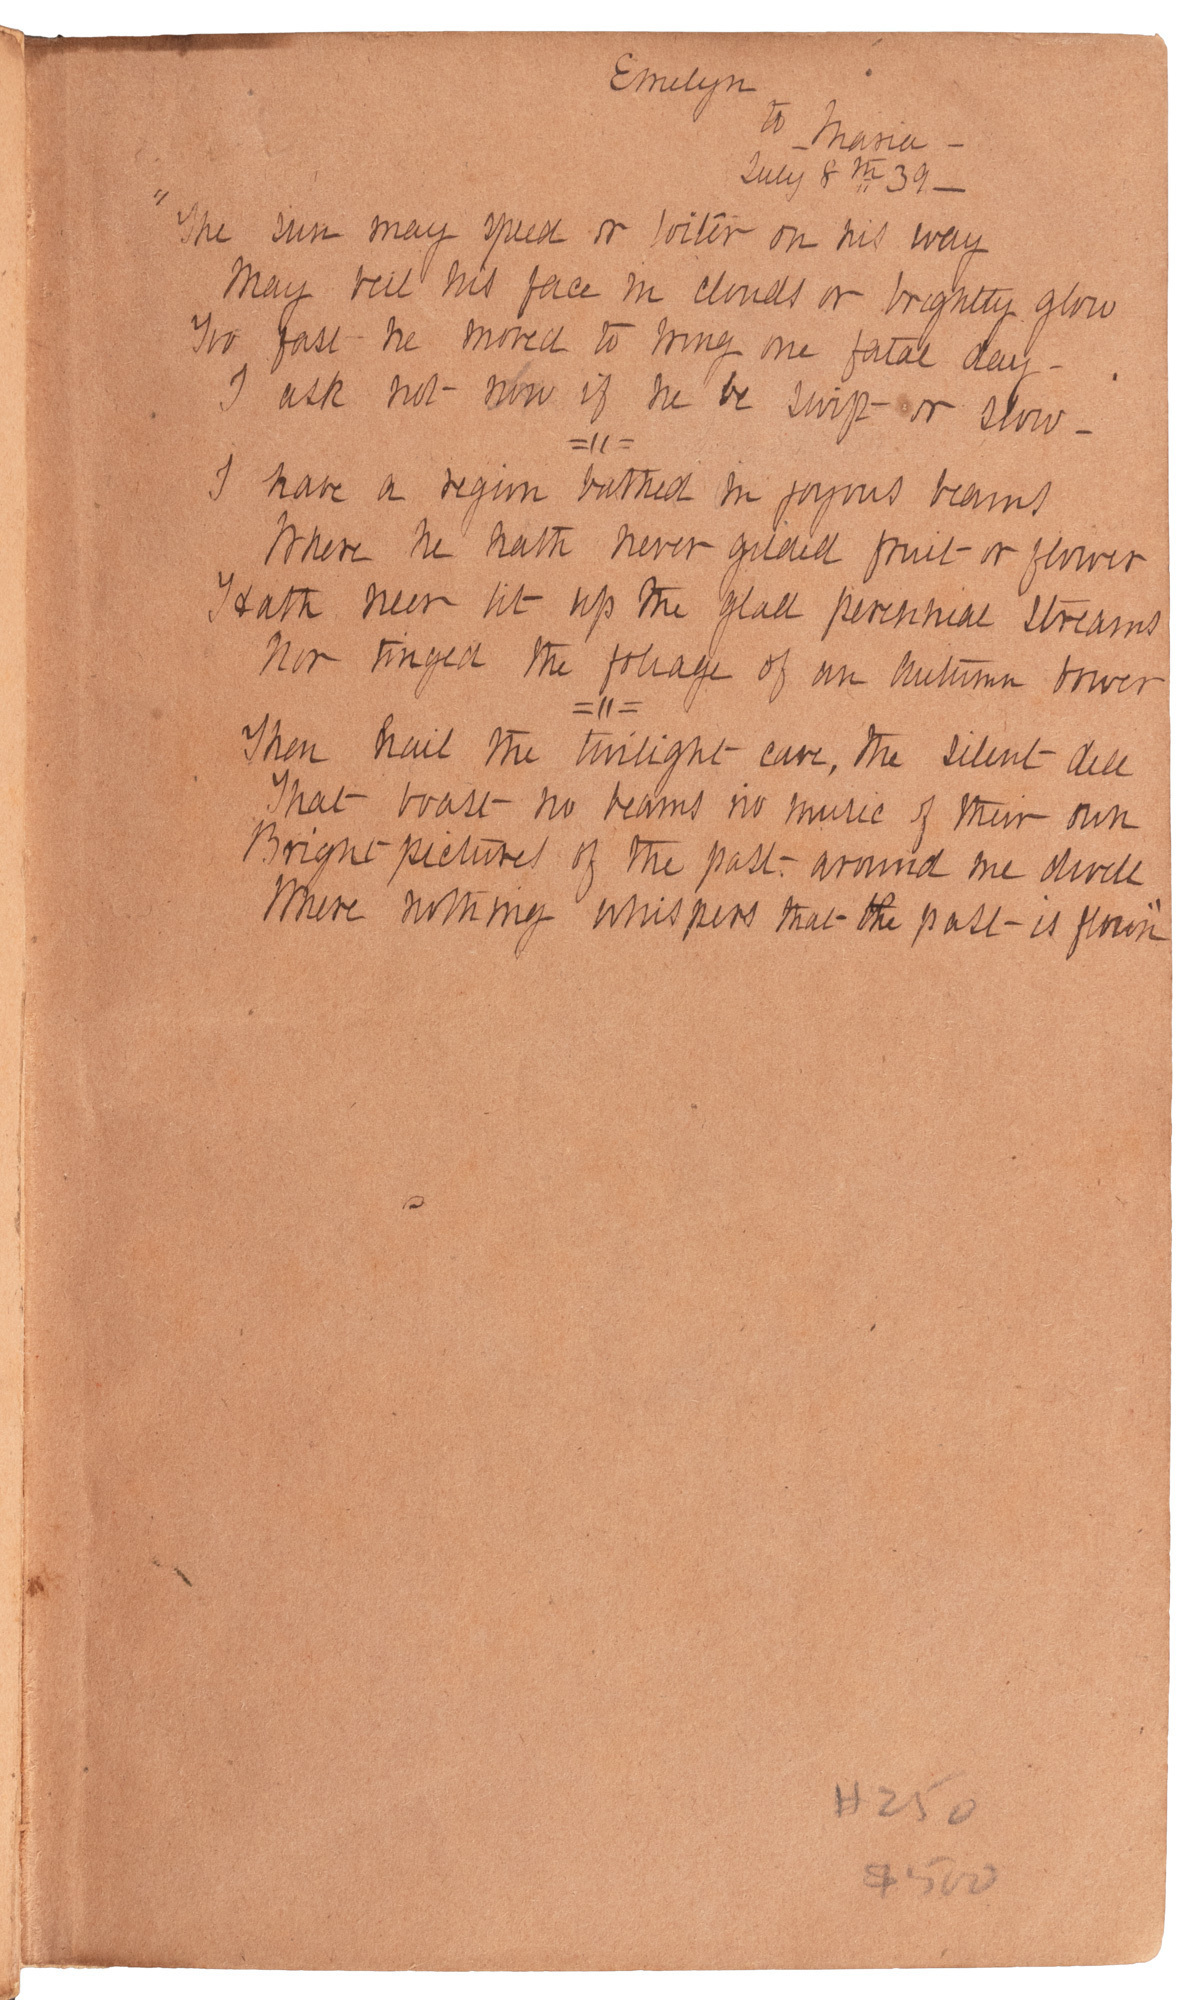 Emelyn
to Maria -
July 8th 39 -
"The sun may speed or loiter on his way
May veil his face in clouds or brightly glow
Too fast he moved to bring one fatal day -
I ask not now if he be swift or slow -
="=
I have a region bathed in joyous beams
Where he hath never gilded fruit or flower
Hath neer lit up the glad perennial streams
Nor tinged the foliage of an Autumn bower
="=
Then hail the twilight cave, the silent dell
That boast no beams no music of their own
Bright pictures of the past around me dwell
Where nothing whispers that the past is flown"
H250
$500